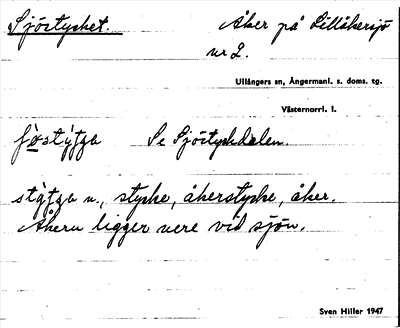 Sjöstycket.
Åker på Lillåkersjö
nr 2.
Ullångers sn, Ångermanl. s. doms. tg.
Västernorrl. l.
Se Sjöstyckdalen.
n., stycke, åkerstycke, åker.
Åkern ligger nere vid sjön.
Sven Hiller 1947